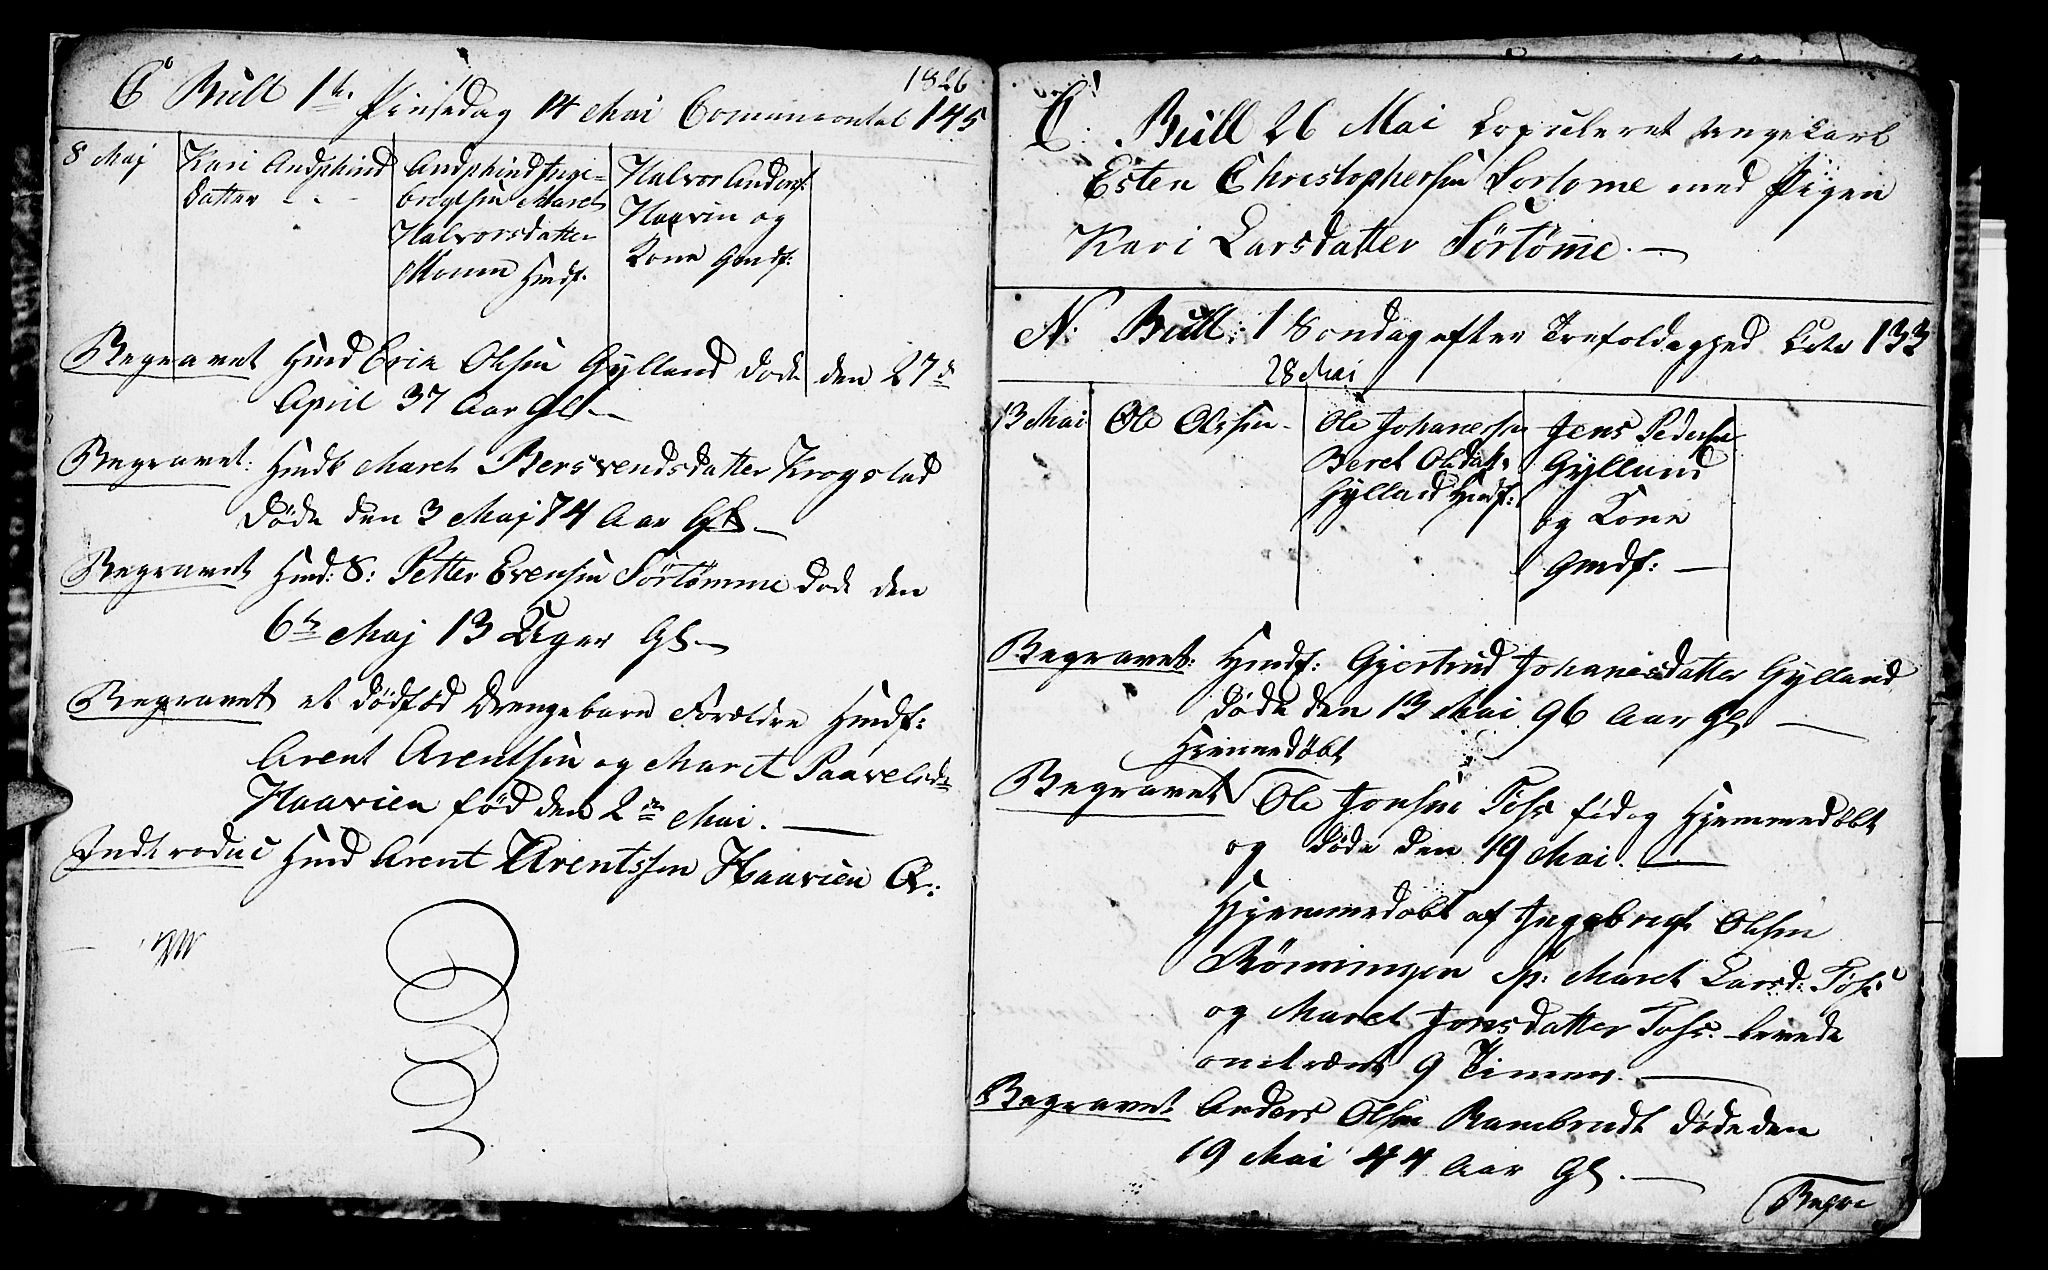 1826
C Bull 1ste Pinsedag 14 Mai Comuncontal 145
8 Maj
Kari Andphind
datter
Andphind Inge-
bregtsen Maret
Halvorsdatter
Moum Hmdf.
Halvor Anders:
Haavin og
Kone Gmdf:
Begravet Hmd Erik Olsen Gylland døde den 27de
April 37 Aar Gl.
Begravet: Hmdk Maret Bersvendsdatter Krogstad
døde den 3 Maj 74 Aar Gl.
Begravet Hmd: S: Petter Evensen Sørtømme døde den
6te Maj 13 Uger Gl.
Begravet et dødfød Drengebarn Forældre Hmdf:
Arent Arentsen og Maret Paavelsd:
Haavien fød den 2den Mai.
Indtroduc Hmd Arent Arentssen Haavien K:
C: Bull 26 Mai Copuleret Ungekarl
Esten Christophersen Sortome med Pigen
Kari Larsdatter Sörtömme.
N: Bull: 1 Sondag efter Trefoldeghed 133
28 Mai
13 Mai
Ole Olssen
Ole Johanesen
Beret Olsdatr
Gylland Hmdf:
Jens Pedersen
Gylland
og Kone
Gmdf:
Begravet: Hmdf: Gjertrud Johanesdatter Gylland
døde den 13 Mai 96 Aar Gl
Hjemmedøbt
Begravet Ole Jonsen Foss fød og Hjemmedøbt
og døde den 19 Mai.
Hjemmedøbt af Ingebregt Olsen
Rønningen Sp: Maret Larsd: Foss
og Maret Jonsdatter Foss. levede
omtrent 9 Timer.
Begravet Anders Olsen Rambradt døde den
19 Mai 44 Aar Gl.
Begra